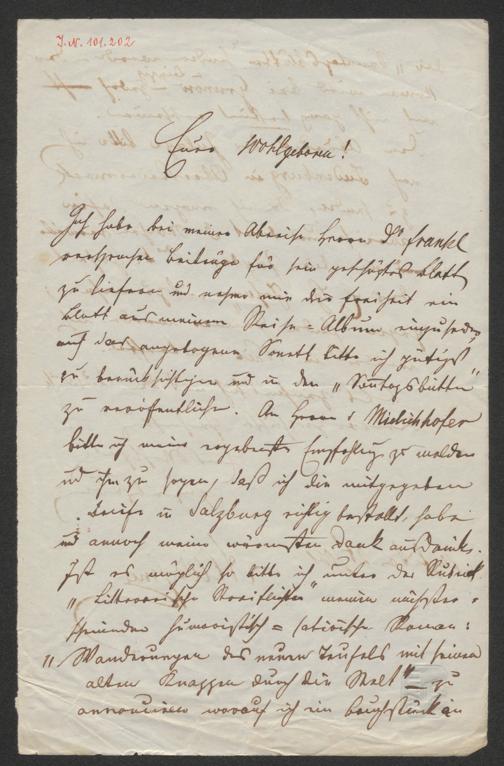 I. N. 101.202
Euer Wohlgeboren!
Ich habe bei meiner Abreise Herrn Dr Frankl
versprochen Beiträge für sein geschätztes Blatt
zu liefern und nehme mir die Freiheit ein
Blatt aus meinem Reise=Album einzusenden
auch das angebogene Sonett bitte ich gütigst
zu berücksichtigen und in den „Sonntagsblättern"
zu veröffentlichen. An Herrn v Mielichhofer
bitte ich meine ergebenste Empfehlung zu melden
und ihm zu sagen, daß ich die mitgegebenen
Briefe in Salzburg richtig bestellt habe
und annoch meinen wärmsten Dank ausdrücke.
Ist es möglich so bitte ich unter der Rubrik
„Litterarische Streiflichter" meinen nächster=
scheinenden humoristisch=satirischen Roman:
„Wanderungen des neuen Teufels mit seinem
alten Knappen durch die Welt" zu
annonciren worauf ich ein Bruchstück an